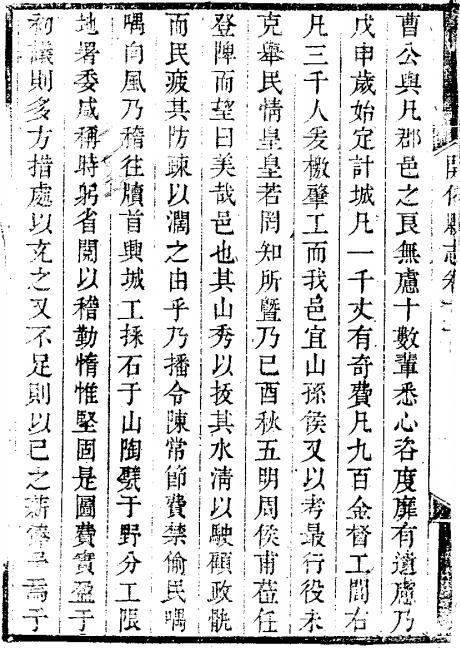 開化縣志卷十
曹公與凡郡邑之良無慮十數輩悉心咨度靡有遺慮乃
戊申歲始定計城凡一千丈有奇費凡九百金督工閭右
凡三千人爰檄肇工而我邑宜山孫侯又以考最行役未
克舉民情皇皇若罔知所曁乃已酉秋五明周侯甫蒞任
登陴而望曰美哉邑也其山秀以拔其水淸以駛顧政骫
而民疲其防疎以濶之由乎乃播令陳常節費禁偷民喁
喁向風乃稽往牘首興城工採石于山陶甓于野分工限
地署委咸稱時躬省閱以稽勤惰惟堅固是圖費實盈于
初議則多方措處以充之又不足則以已之薪俸予焉于